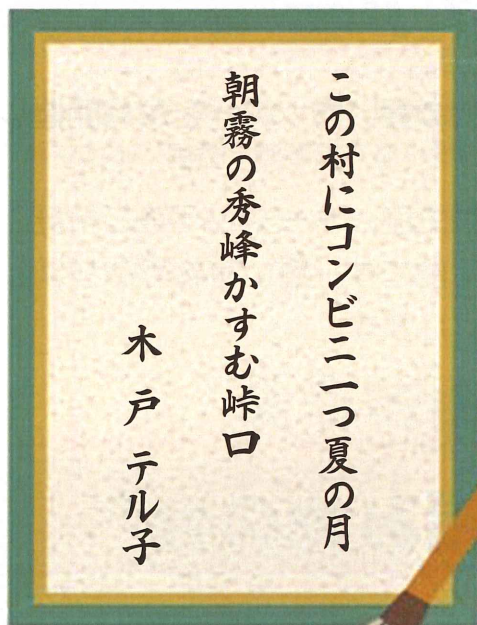 この村にコンビニ一つ夏の月
朝霧の秀峰かすむ峠口
木戸テル子